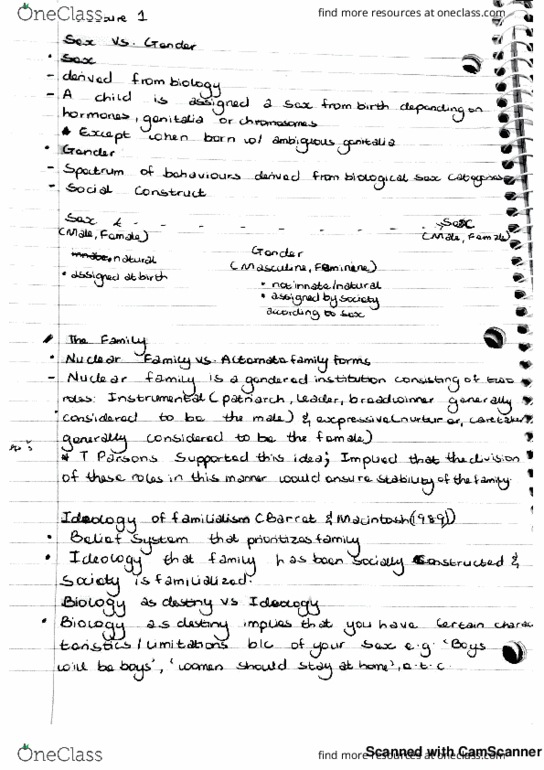 OneClass
find more resources at oneclass.com
Lecture 1
Sex Vs. Gender
• Sex
- derived from biology
- A child is assigned a sex from birth depending on
hormones, genitalia or chromosomes
* Except when born w/ ambiguous genitalia
• Gender
- Spectrum of behaviours derived from biological sex categories
- Social Construct
Sex ← - - - - - - - - - → Sex
(Male, Female) (Male, Female)
innate, natural
• assigned at birth
Gender
(Masculine, Feminine)
• not innate/natural
• assigned by society
according to sex
The Family
• Nuclear Family vs. Alternate family forms
- Nuclear family is a gendered institution consisting of two
roles: Instrumental (patriarch, leader, breadwinner generally
considered to be the male) & expressive (nurturer, caretaker
generally considered to be the female)
* T Parsons Supported this idea; Implied that the division
of these roles in this manner would ensure stability of the family.
Ideology of familialism (Barret & Macintosh (1989))
• Belief System that prioritizes family
• Ideology that family has been socially constructed &
Society is familialized.
Biology as destny vs Ideology
• Biology as destny implies that you have certain charac
teristics/limitations b/c of your sex e.g 'Boys
will be boys', 'women should stay at home', e.t.c.
OneClass
find more resources at oneclass.com
Scanned with CamScanner